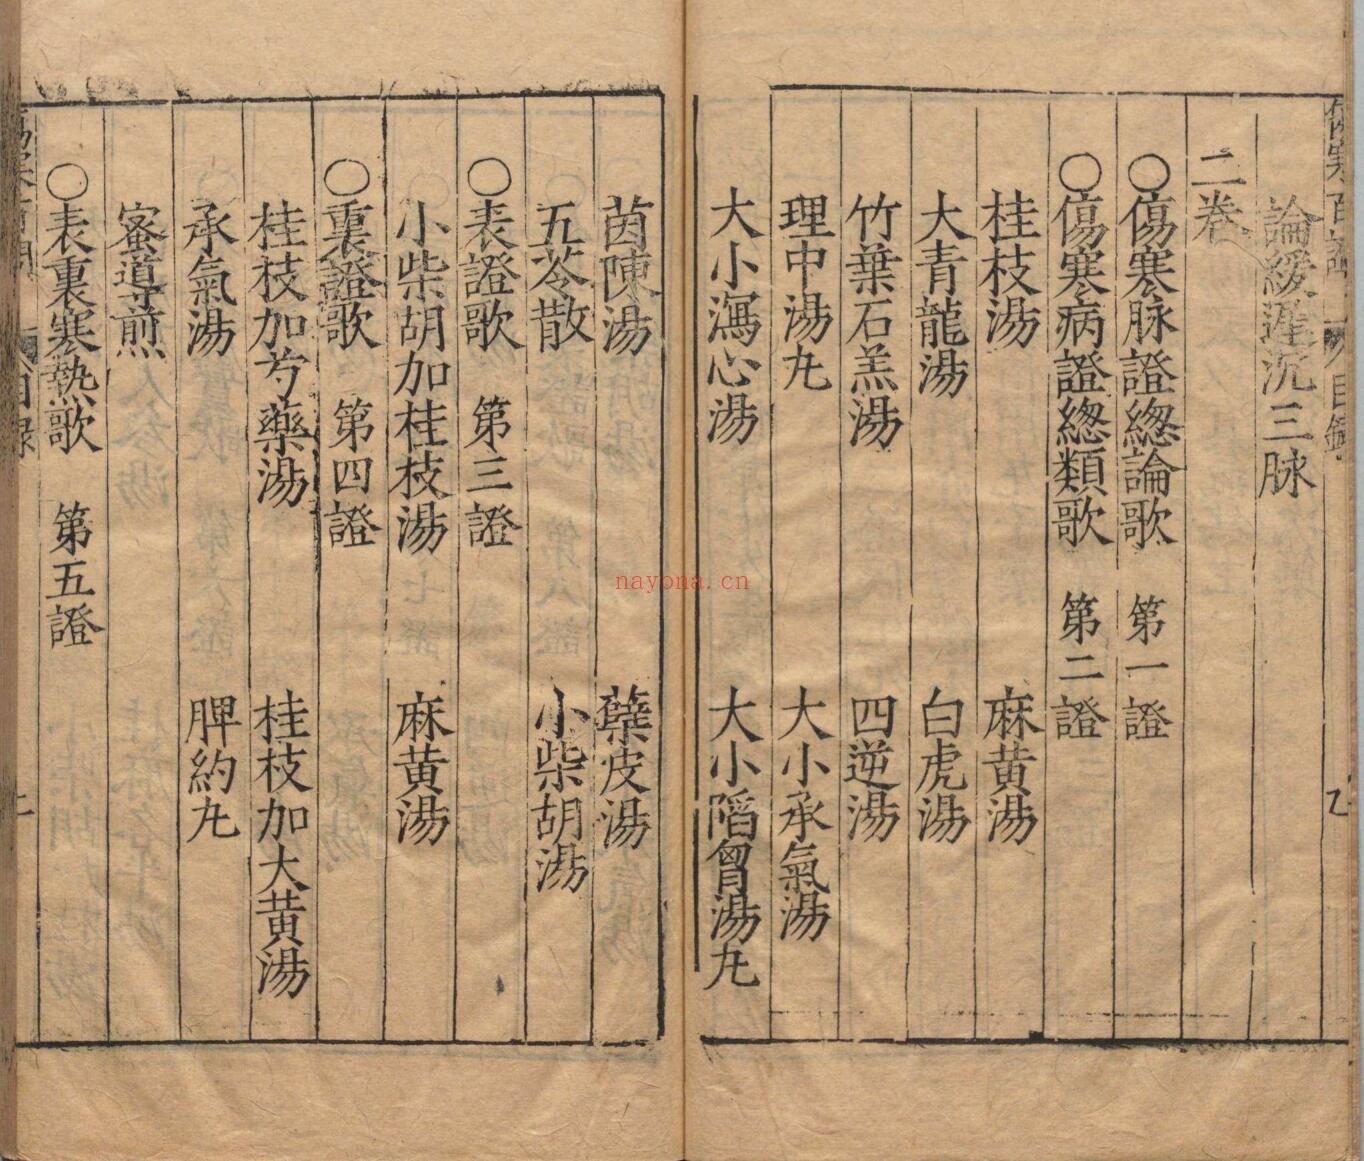 論緩遲沉三脉
二卷
○傷寒脉證總論歌 第一證
○傷寒病證總類歌 第二證
桂枝湯 麻黃湯
大青龍湯 白虎湯
竹葉石羔湯 四逆湯
理中湯丸 大小承氣湯
大小瀉心湯 大小陷胷湯丸
茵陳湯 蘗皮湯
五苓散 小柴胡湯
○表證歌 第三證
小柴胡加桂枝湯 麻黃湯
○裏證歌 第四證
桂枝加芍藥湯 桂枝加大黃湯
承氣湯 脾約丸
蜜導煎
○表裏寒熱歌 第五證
nayona.cn